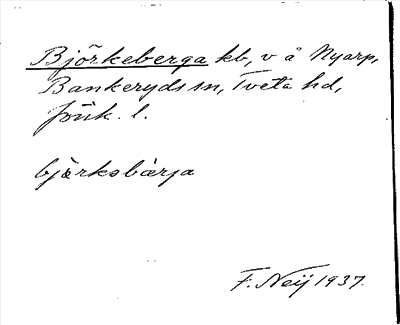 Björkeberga kb, v å Nyarp,
Bankeryds sn, Tveta hd,
Jönk. l.
björkabärja
F. Neij 1937.